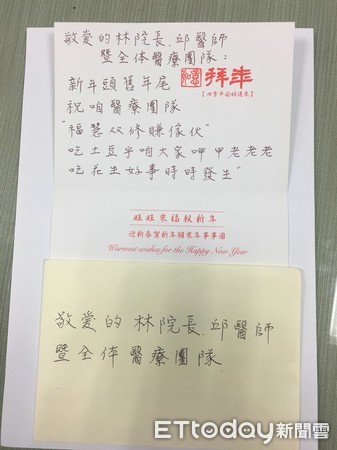 敬愛的林院長.邱醫師
暨全体醫療團隊:
新年頭舊年尾
拜年
祝咱醫療團隊
“福慧双修賺傢伙”
吃土豆乎咱大家呷甲老老老
吃花生好事時時發生”
旺旺來福報新年
迎新春賀新年願來年事事圓
Warmest wishes for the Happy New Year
敬愛的林院長.邱醫師
暨全体醫療團隊
ETtoday新聞雲